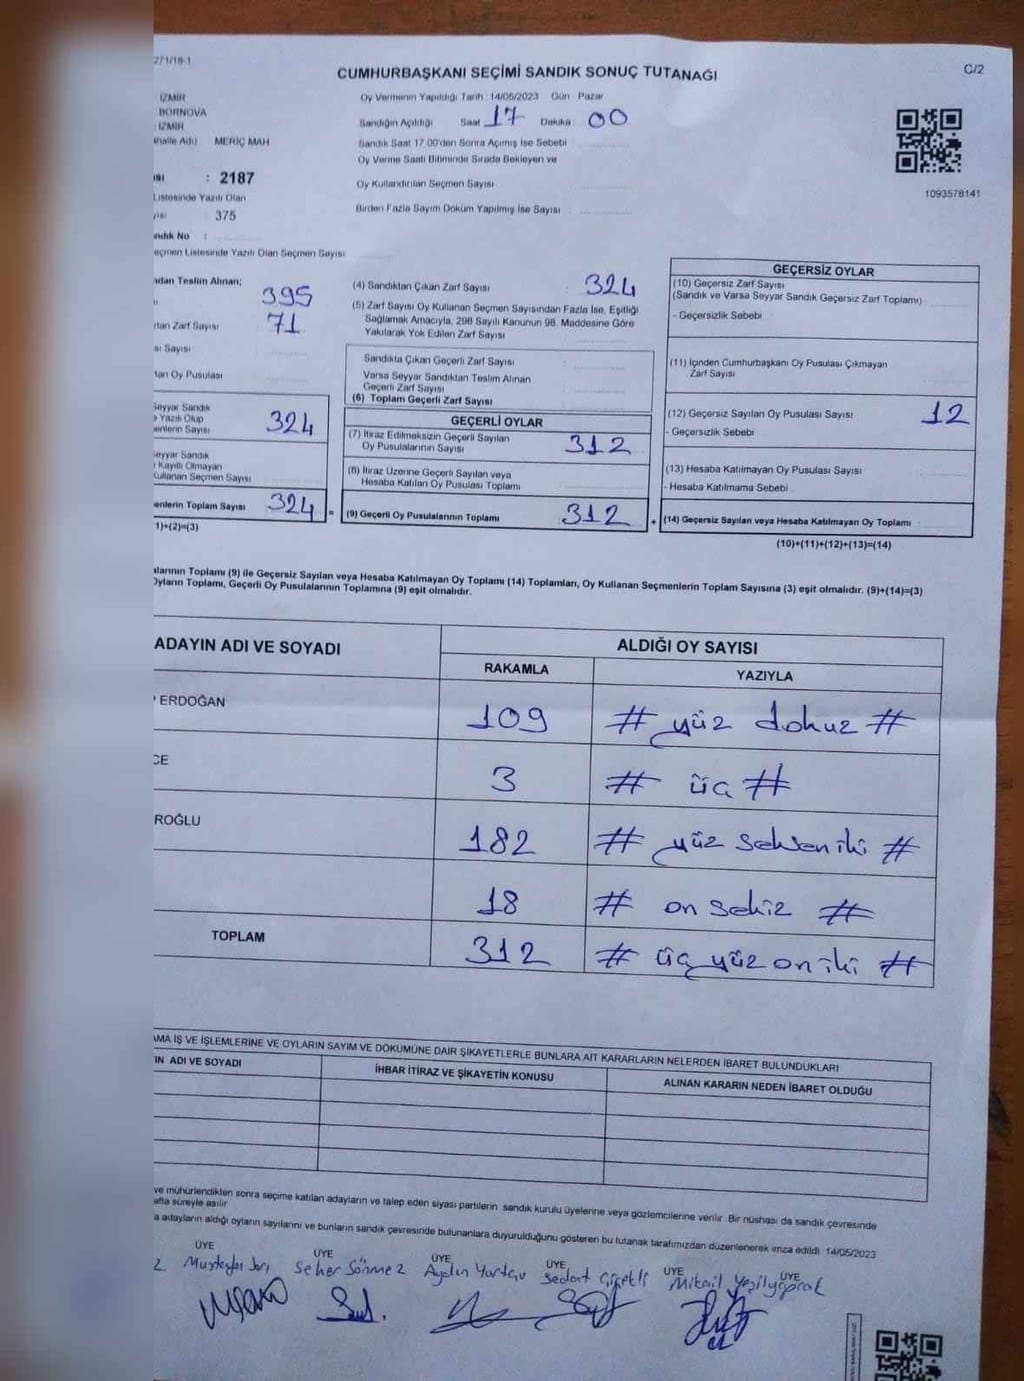 271/18-1
CUMHURBAŞKANI SEÇİMİ SANDIK SONUÇ TUTANAĞI
C/2
İZMİR
BORNOVA
İZMİR
MERİÇ MAH
: 2187
Listesinde Yazılı Olan
: 375
andık No :
eçmen Listesinde Yazılı Olan Seçmen Sayısı
Oy Vermenin Yapıldığı Tarih : 14/05/2023 Gün Pazar
Sandığın Açıldığı Saat 17 Dakika 00
Sandık Saat 17.00'den Sonra Açımış İse Sebebi
Oy Verme Saati Bitiminde Sırada Bekleyen ve
Oy Kullandırılan Seçmen Sayısı
Birden Fazla Sayım Döküm Yapılmış İse Sayısı :
1093578141
ndan Teslim Alınan;
395
rtan Zarf Sayısı 71
sı Sayısı
tan Oy Pusulası
Seyyar Sandık
a Yazılı Olup
enlerin Sayısı 324
Seyyar Sandık
ı Kayıtlı Olmayan
Kullanan Seçmen Sayısı
enlerin Toplam Sayısı 324 =
1)+(2)=(3)
(4) Sandıktan Çıkan Zarf Sayısı 324
(5) Zarf Sayısı Oy Kullanan Seçmen Sayısından Fazla İse, Eşitliği
Sağlamak Amacıyla, 298 Sayılı Kanunun 98. Maddesine Göre
Yakılarak Yok Edilen Zarf Sayısı
Sandıkta Çıkan Geçerli Zarf Sayısı
Varsa Seyyar Sandıktan Teslim Alınan
Geçerli Zarf Sayısı
(6) Toplam Geçerli Zarf Sayısı
GEÇERLİ OYLAR
(7) İtiraz Edilmeksizin Geçerli Sayılan
Oy Pusulalarının Sayısı 312
(8) İtiraz Üzerine Geçerli Sayılan veya
Hesaba Katılan Oy Pusulası Toplamı
(9) Geçerli Oy Pusulalarının Toplamı 312 +
GEÇERSİZ OYLAR
(10) Geçersiz Zarf Sayısı
(Sandık ve Varsa Seyyar Sandık Geçersiz Zarf Toplamı)
- Geçersizlik Sebebi
(11) İçinden Cumhurbaşkanı Oy Pusulası Çıkmayan
Zarf Sayısı
(12) Geçersiz Sayılan Oy Pusulası Sayısı 12
- Geçersizlik Sebebi
(13) Hesaba Katılmayan Oy Pusulası Sayısı
- Hesaba Katılmama Sebebi
(14) Geçersiz Sayılan veya Hesaba Katılmayan Oy Toplamı
(10)+(11)+(12)+(13)=(14)
alarının Toplamı (9) ile Geçersiz Sayılan veya Hesaba Katılmayan Oy Toplamı (14) Toplamları, Oy Kullanan Seçmenlerin Toplam Sayısına (3) eşit olmalıdır. (9)+(14)=(3)
Oyların Toplamı, Geçerli Oy Pusulalarının Toplamına (9) eşit olmalıdır.
ADAYIN ADI VE SOYADI
ALDIĞI OY SAYISI
RAKAMLA YAZIYLA
ERDOĞAN 109 # yüz dokuz #
CE 3 # üç #
ROĞLU 182 # yüz seksen iki #
18 # on sekiz #
TOPLAM 312 # üç yüz on iki #
AMA İŞ VE İŞLEMLERİNE VE OYLARIN SAYIM VE DÖKÜMÜNE DAİR ŞİKAYETLERLE BUNLARA AİT KARARLARIN NELERDEN İBARET BULUNDUKLARI
IN ADI VE SOYADI İHBAR İTİRAZ VE ŞİKAYETİN KONUSU ALINAN KARARIN NEDEN İBARET OLDUĞU
ve mühürlendikten sonra seçime katılan adayların ve talep eden siyasi partilerin sandık kurulu üyelerine veya gözlemcilerine verilir. Bir nüshası da sandık çevresinde
afta süreyle asılır
a adayların aldığı oyların sayılarını ve bunların sandık çevresinde bulunanlara duyurulduğunu gösteren bu tutanak tarafımızdan düzenlenerek imza edildi. 14/05/2023
ÜYE ÜYE ÜYE ÜYE ÜYE ÜYE
Seher Sönmez Aydın Yurtçu Sedat Çiçekli Mikail Yeşilyaprak